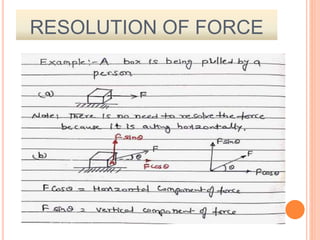 RESOLUTION OF FORCE
Example:- A box is being pulled by a
person
(a) F
Note: There is no need to resolve the force
because it is acting horizontally.
F sinθ
(b) F θ F cosθ
F sinθ
F
θ
F cosθ
F cosθ = Horizontal component of force
F sinθ = vertical component of force